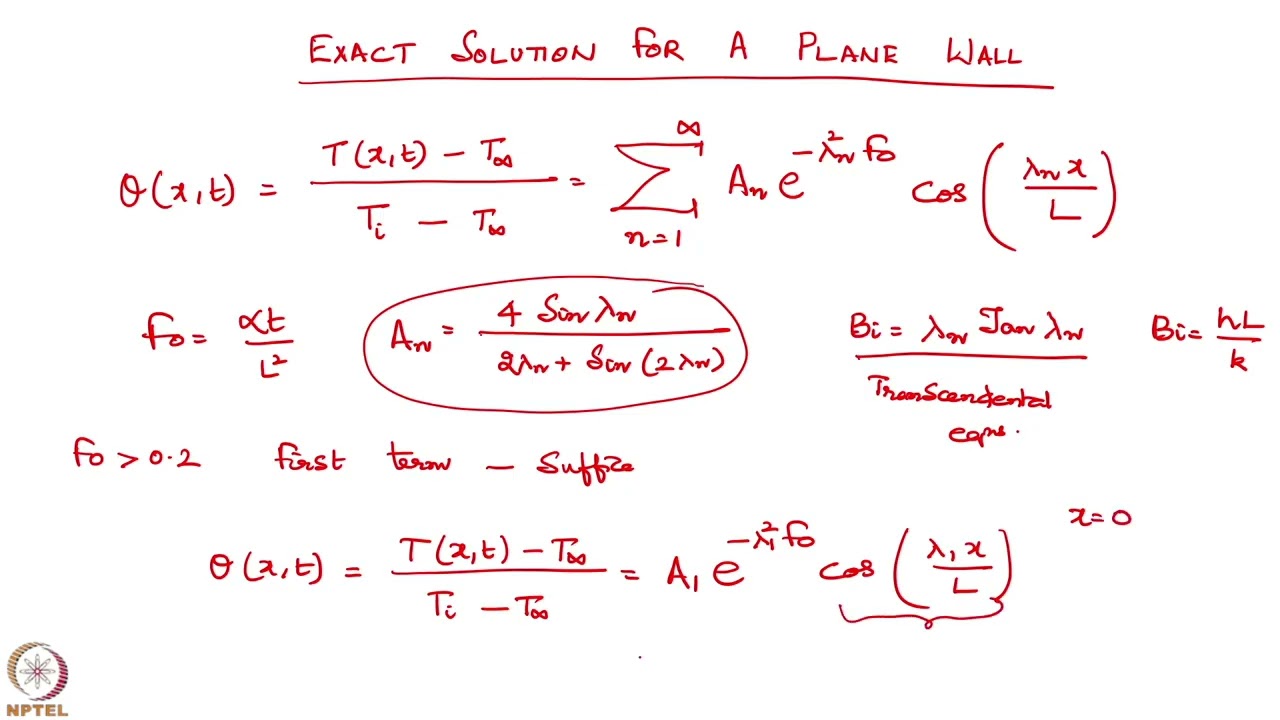 EXACT SOLUTION FOR A PLANE WALL
θ(x,t) = (T(x,t) − T∞)/(Ti − T∞) = ∑_{n=1}^{∞} An e^{−λn² Fo} cos(λn x/L)
Fo = αt/L² An = 4 Sin λn/(2λn + Sin(2λn)) Bi = λn Tan λn Bi = hL/k
Transcendental
eqns.
Fo > 0.2 first term – suffice
x=0
θ(x,t) = (T(x,t) − T∞)/(Ti − T∞) = A1 e^{−λ1² Fo} cos(λ1 x/L)
NPTEL